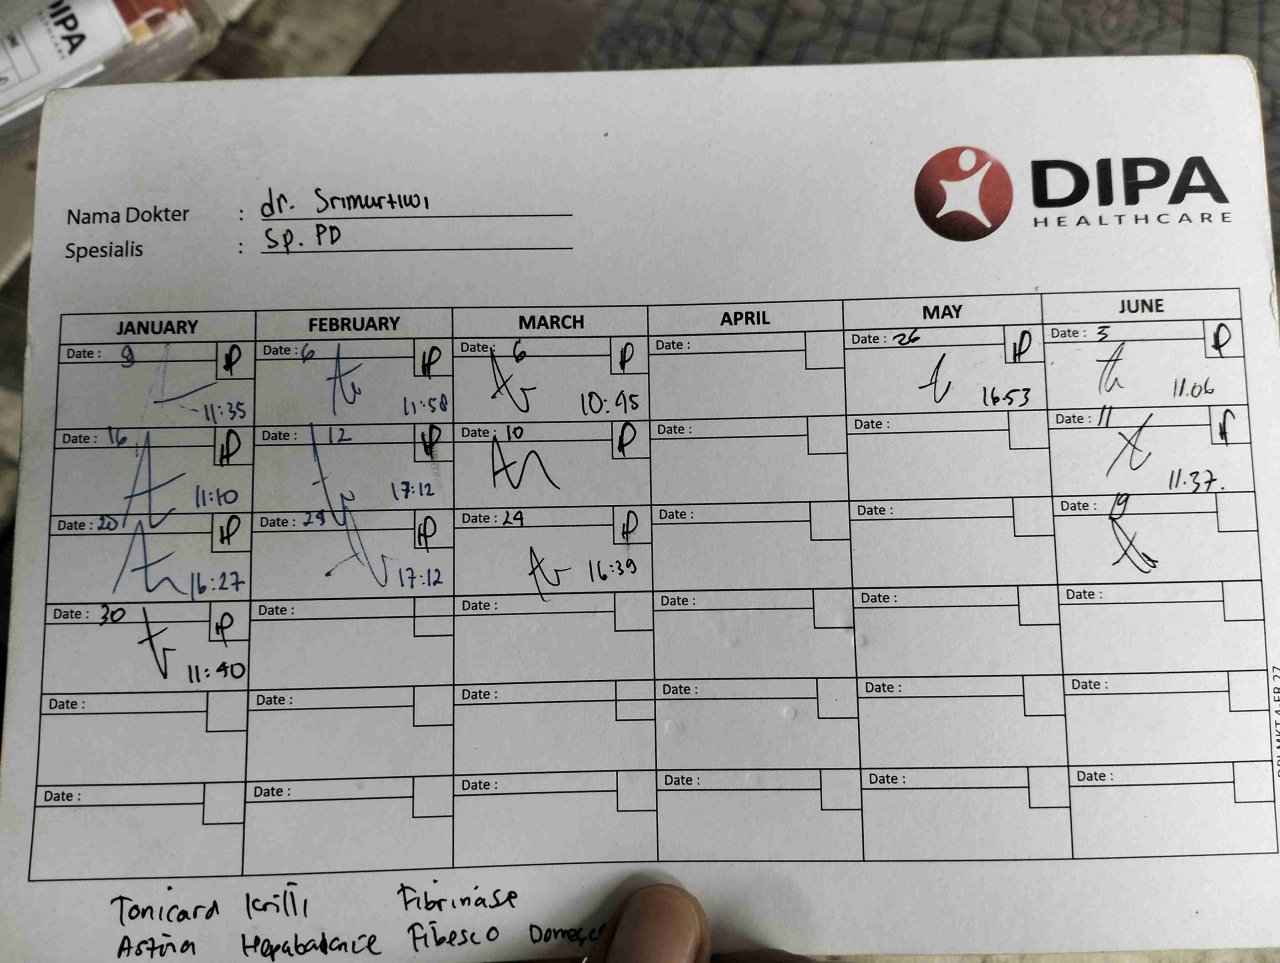 DIPA
HEALTHCARE
Nama Dokter : dr. Srimurtiwi
Spesialis : Sp. PD
JANUARY FEBRUARY MARCH APRIL MAY JUNE
Date : 9 Date : 6 Date : 6 Date : Date : 26 Date : 3
11:35 11:58 10:45 16.53 11.06
Date : 16 Date : 12 Date : 10 Date : Date : Date : 11
11:10 17:12 11.37.
Date : 20 Date : 24 Date : 24 Date : Date : Date : 19
16:27 17:12 16:39
Date : 30 Date : Date : Date : Date : Date :
11:40
Date : Date : Date : Date : Date : Date :
Date : Date : Date : Date : Date : Date :
Tonicard krilli Fibrinase
Astina Hepabalance Fibesco